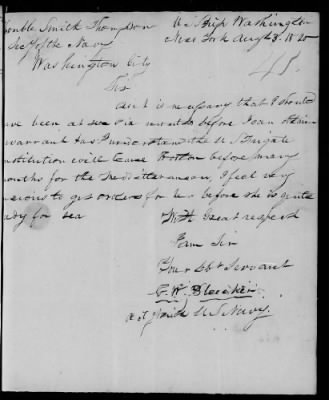 onble Smith Thompson
Secy of the Navy
Washington City
U S Ship Washington
New York Aug 3. 1820
Sir
As it is necessary that I should
have been at sea six months before I can obtain
warrant & as I understand the U S Frigate
onstitution will leave Boston before many
months for the Mediterranean, I feel very
anxious to get orders for her before she is quite
ady for sea
With Great respect
I am Sir
Your Obt Servant
G. W. Bleecker
act g Midn U S Navy.